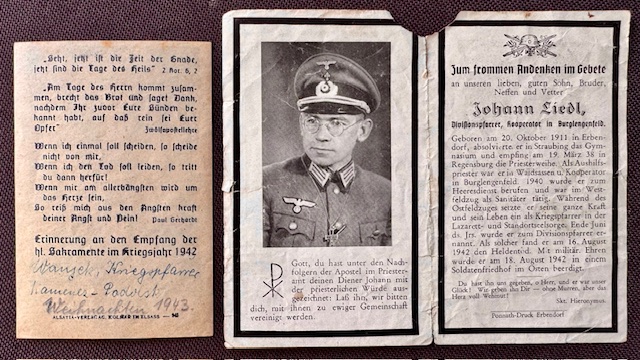 „Seht, jetzt ist die Zeit der Gnade,
jetzt sind die Tage des Heils" 2 Kor. 6, 2
„Am Tage des Herrn kommt zusam-
men, brecht das Brot und saget Dank,
nachdem Ihr zuvor Eure Sünden be-
kannt habt, auf daß rein sei Eure
Opfer" Zwölfapostellehre
Wenn ich einmal soll scheiden, so scheide
nicht von mir,
Wenn ich den Tod soll leiden, so tritt
du dann herfür!
Wenn mir am allerbängsten wird um
das Herze sein,
So reiß mich aus den Ängsten kraft
deiner Angst und Pein! Paul Gerhardt
Erinnerung an den Empfang der
hl. Sakramente im Kriegsjahr 1942
Kriegspfarrer
Weihnachten 1943.
ALSATIA-VERLAG AG. KOLMAR IM ELSASS
Gott, du hast unter den Nach-
folgern der Apostel im Priester-
amt deinen Diener Johann mit
der priesterlichen Würde aus-
gezeichnet: Laß ihn, wir bitten
dich, mit ihnen zu ewiger Gemeinschaft
vereinigt werden.
Zum frommen Andenken im Gebete
an unseren lieben, guten Sohn, Bruder,
Neffen und Vetter
Johann Liedl,
Divisionspfarrer, Kooperator in Burglengenfeld.
Geboren am 20. Oktober 1911 in Erben-
dorf, absolvierte er in Straubing das Gym-
nasium und empfing am 19. März 38 in
Regensburg die Priesterweihe. Als Aushilfs-
priester war er in Waldsassen u. Kooperator
in Burglengenfeld. 1940 wurde er zum
Heeresdienst berufen und war im West-
feldzug als Sanitäter tätig. Während des
Ostfeldzuges setzte er seine ganze Kraft
und sein Leben ein als Kriegspfarrer in der
Lazarett- und Standortseelsorge. Ende Juni
ds. Jrs. wurde er zum Divisionspfarrer er-
nannt. Als solcher fand er am 16. August
1942 den Heldentod. Mit militär. Ehren
wurde er am 18. August 1942 in einem
Soldatenfriedhof im Osten beerdigt.
Du hast ihn uns gegeben, o Herr, und er war unser
Glück! Wir geben ihn Dir — ohne Murren, aber das
Herz voll Wehmut!
Skt. Hieronymus.
Ponnath-Druck Erbendorf